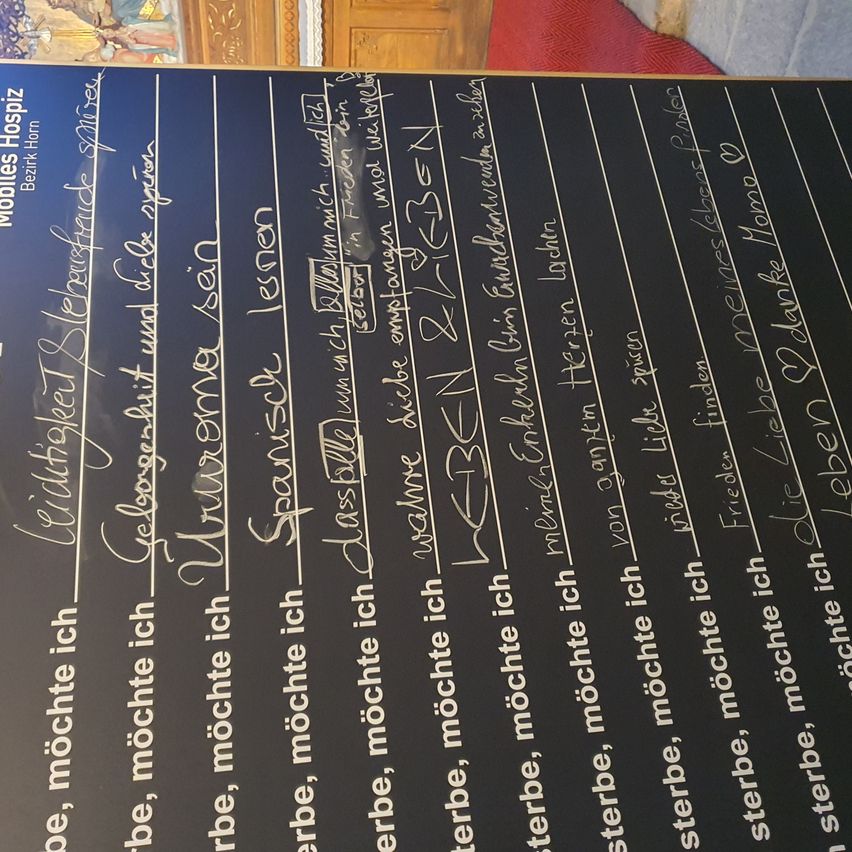 Mobiles Hospiz
Bezirk Horn
be, möchte ich Leichtigkeit & Lebensfreude spüren
rbe, möchte ich Geborgenheit und Liebe spüren
rbe, möchte ich Ururoma sein
erbe, möchte ich Spanisch lernen
erbe, möchte ich dass alle um mich, alles um mich und ich
selber in Frieden bin
terbe, möchte ich wahre Liebe empfangen und weitergeben
sterbe, möchte ich LEBEN & LIEBEN
sterbe, möchte ich meinen Enkerln beim Erwachsenwerden zusehen
sterbe, möchte ich von ganzem Herzen lachen
sterbe, möchte ich wieder Liebe spüren
sterbe, möchte ich Frieden finden
sterbe, möchte ich die Liebe meines Lebens finden
sterbe, möchte ich Leben ♡ danke Momo ♡
möchte ich